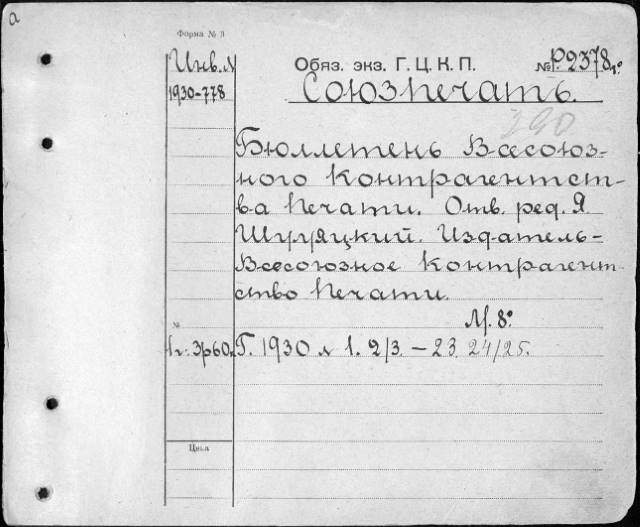 а
Форма № 3
Инв. №
1930-778
Обяз. экз. Г. Ц. К. П.
№ Р2378 1°
Союзпечать.
290
Бюллетень Всесоюз-
ного Контрагентст-
ва Печати. Отв. ред. Я.
Шугряцкий. Издатель-
Всесоюзное Контрагент-
ство Печати.
М. 8°
№
1 г: 3р60к. Г. 1930 № 1. 2/3. – 23. 24/25.
Цена